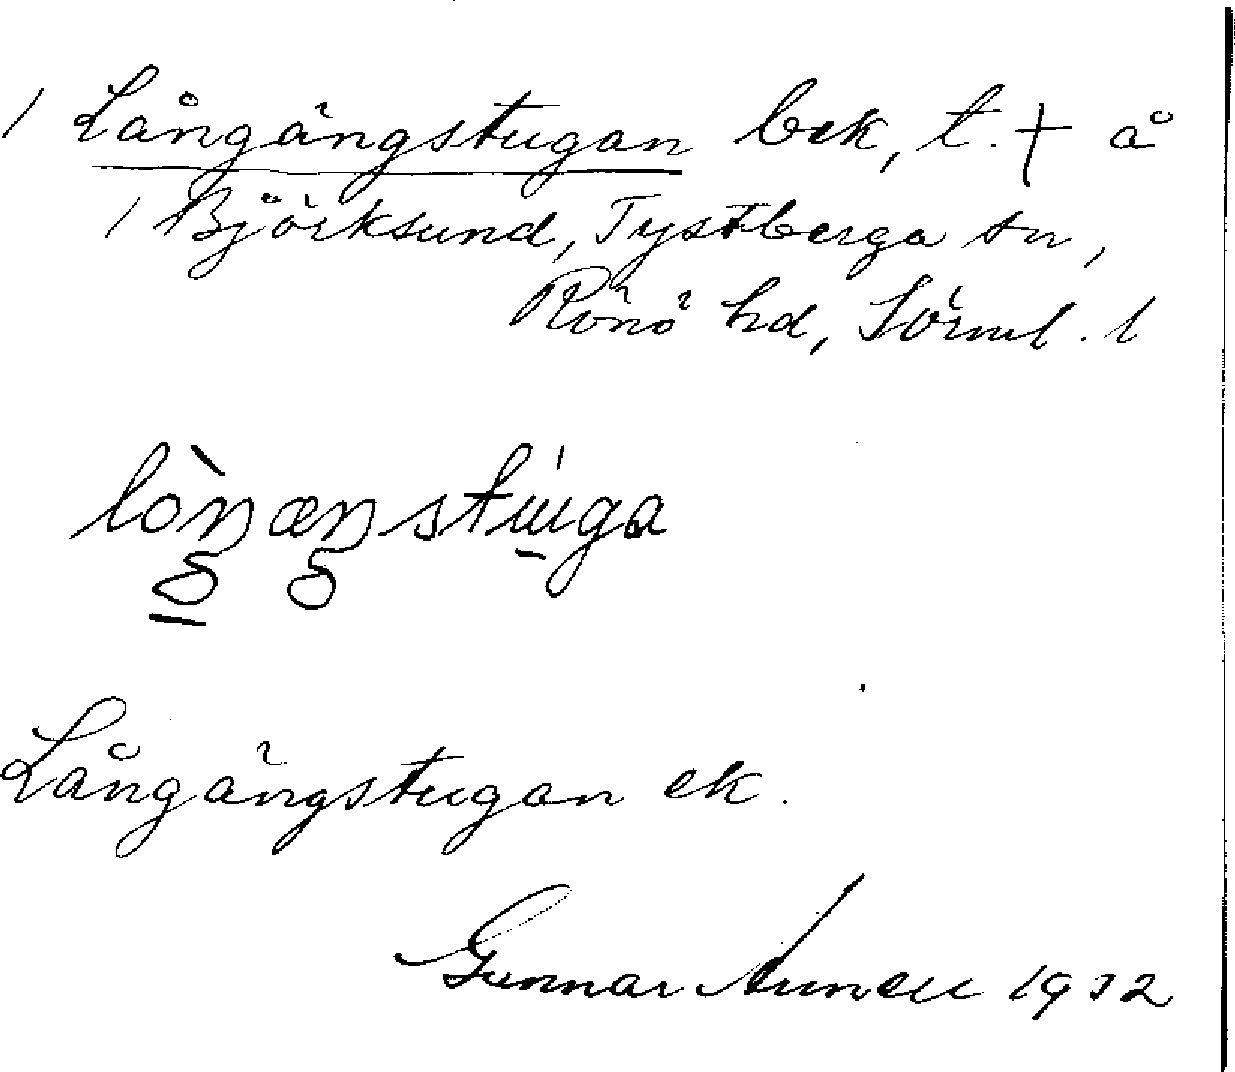 / Långängstugan bek, t. † å
/ Björksund, Tystberga sn,
Rönö hd, Sörml. l
lòŋæŋstúga
Långängstugan ek.
Gunnar 1932